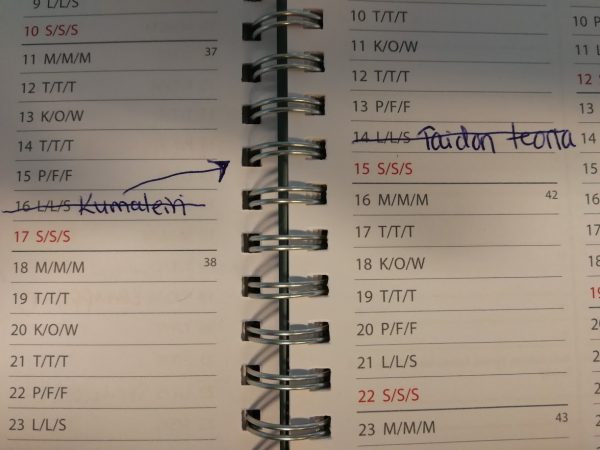 9 L/L/S
10 S/S/S
11 M/M/M 37
12 T/T/T
13 K/O/W
14 T/T/T
15 P/F/F
16 L/L/S Kumaleiri
17 S/S/S
18 M/M/M 38
19 T/T/T
20 K/O/W
21 T/T/T
22 P/F/F
23 L/L/S
10 T/T/T
11 K/O/W
12 T/T/T
13 P/F/F
14 L/L/S Taidon teoria
15 S/S/S
16 M/M/M 42
17 T/T/T
18 K/O/W
19 T/T/T
20 P/F/F
21 L/L/S
22 S/S/S
23 M/M/M 43
10 P
11 L
12
14
15
16
17
18